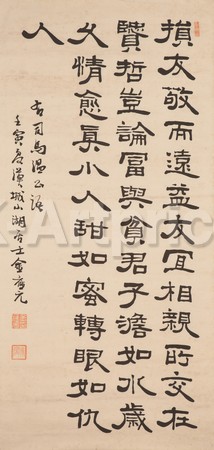 損友敬而遠益友宜相親所交在
賢哲豈論富與貧君子澹如水歲
久情愈真小人甜如蜜轉眼如仇
人
右司馬溫公語
壬寅 漢城山湖 士金 元
K Artprice